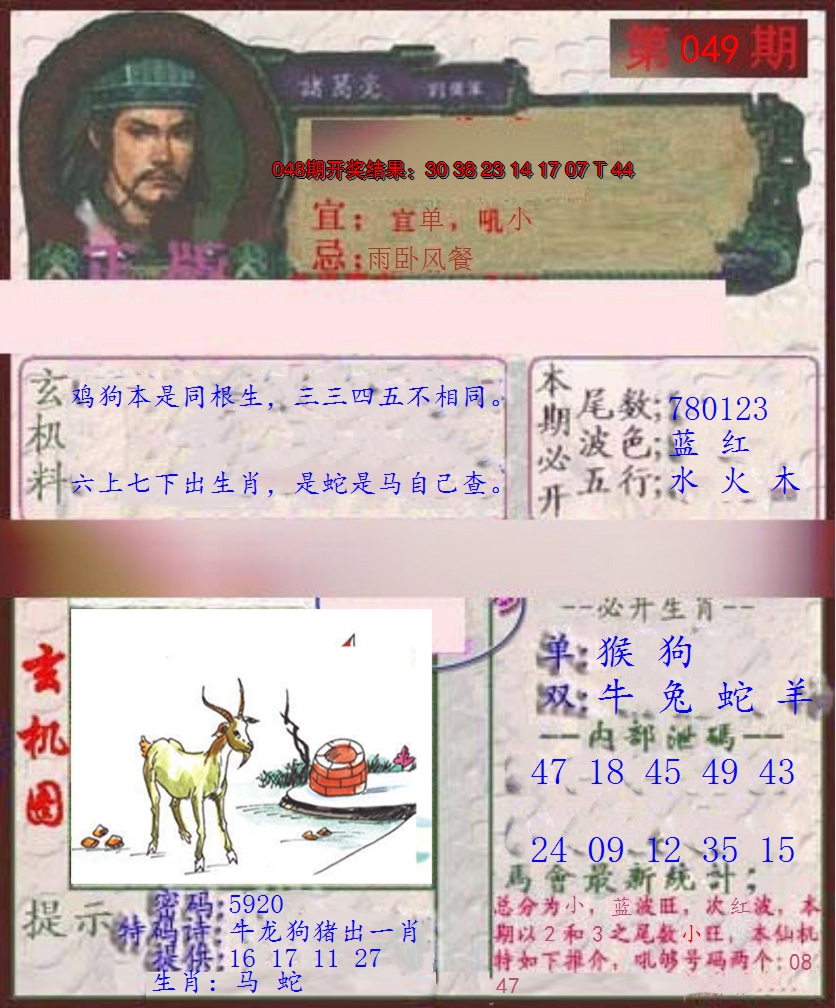 第 049 期
諸葛亮
048期开奖结果：30 38 23 14 17 07 T 44
宜；宜单，吼小
忌；雨卧风餐
正版
玄机料
鸡狗本是同根生，三三四五不相同。
六上七下出生肖，是蛇是马自己查。
本期必开
尾数；780123
波色；蓝 红
五行；水 火 木
玄机图
--必开生肖--
单：猴 狗
双：牛 兔 蛇 羊
—内部泄碼—
47 18 45 49 43
24 09 12 35 15
馬會最新統計；
总分为小，蓝波旺，次红波，本
期以2和3之尾数小旺，本仙机
特如下推介，吼够号码两个：08
47
提示
密码：5920
特码诗：牛龙狗猪出一肖
提供：16 17 11 27
生肖：马 蛇